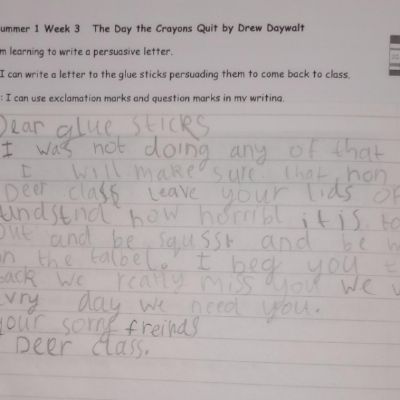 ummer 1 Week 3 The Day the Crayons Quit by Drew Daywalt
m learning to write a persuasive letter.
I can write a letter to the glue sticks persuading them to come back to class.
: I can use exclamation marks and question marks in my writing.
Dear glue sticks
I was not doing any of that
I will make sure that non
Deer class leave your lids of
undstnd how horribl it is to
out and be squsst and be w
on the talbel. I beg you t
back we really miss you we w
evry day we need you.
your some freinds
Deer class.